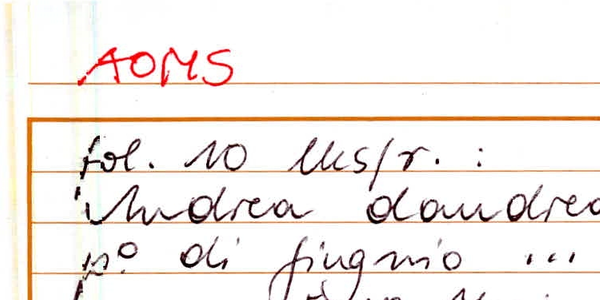 AOMS
fol. 10 lks/r. :
Andrea dandrea
pº di giugnio ...